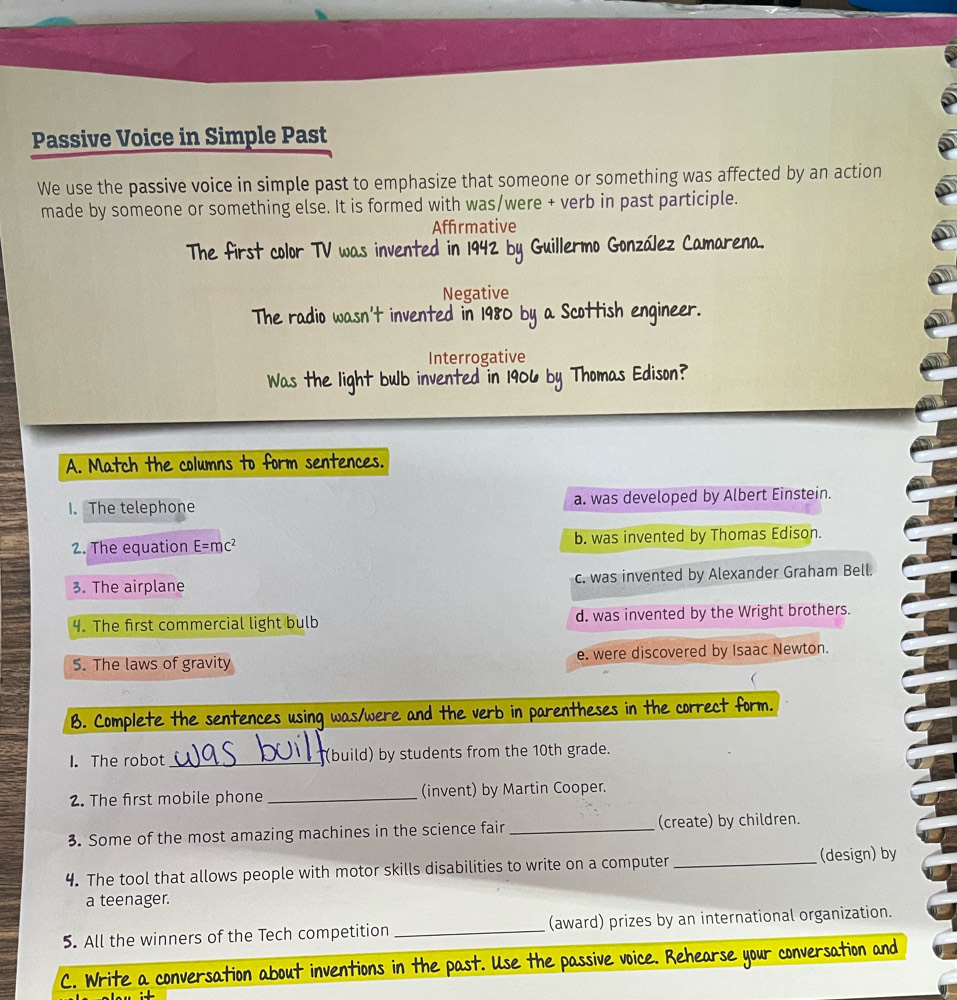 Passive Voice in Simple Past
We use the passive voice in simple past to emphasize that someone or something was affected by an action
made by someone or something else. It is formed with was/were + verb in past participle.
Affirmative
The first color TV was invented in 1942 by Guillermo González Camarena.
Negative
The radio wasn't invented in 1980 by a Scottish engineer.
Interrogative
Was the light bulb invented in 1906 by Thomas Edison?
A. Match the columns to form sentences.
1. The telephone
a. was developed by Albert Einstein.
2. The equation E=mc²
b. was invented by Thomas Edison.
3. The airplane
c. was invented by Alexander Graham Bell.
4. The first commercial light bulb
d. was invented by the Wright brothers.
5. The laws of gravity
e. were discovered by Isaac Newton.
B. Complete the sentences using was/were and the verb in parentheses in the correct form.
1. The robot was built (build) by students from the 10th grade.
2. The first mobile phone ______________ (invent) by Martin Cooper.
3. Some of the most amazing machines in the science fair ______________ (create) by children.
4. The tool that allows people with motor skills disabilities to write on a computer ______________ (design) by
a teenager.
5. All the winners of the Tech competition ______________ (award) prizes by an international organization.
C. Write a conversation about inventions in the past. Use the passive voice. Rehearse your conversation and